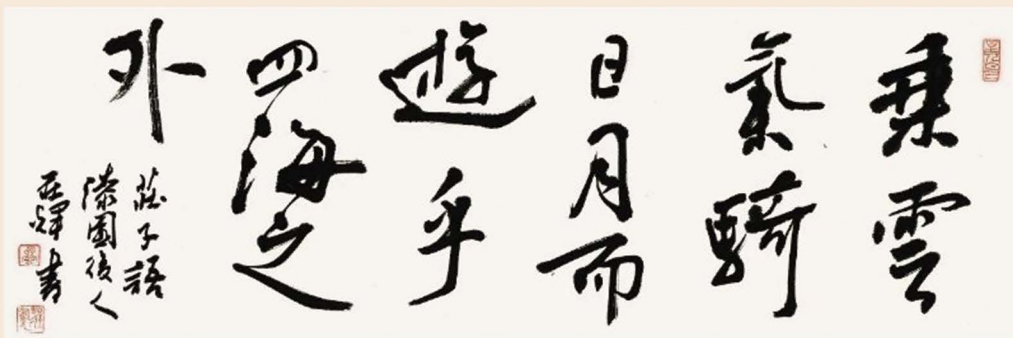 乗雲
氣騎
日月而
遊乎
四海之
外
莊子語
漆園後人
莊輝書